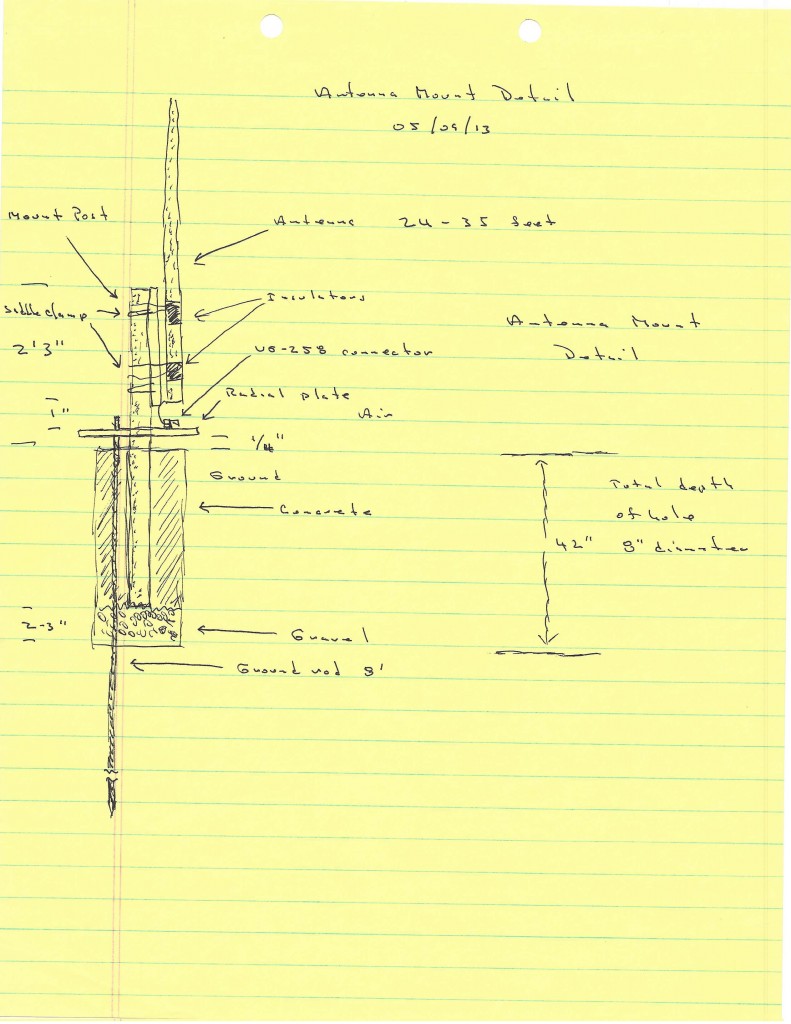 Antenna Mount Detail
05/09/13
Mount Post
Antenna 24-35 feet
Saddle clamp
Insulators
Antenna Mount
Detail
2'3"
UG-258 connector
Radial plate
1"
Air
1/4"
Ground
Total depth
of hole
Concrete
42" 8" diameter
2-3"
Gravel
Ground rod 8'